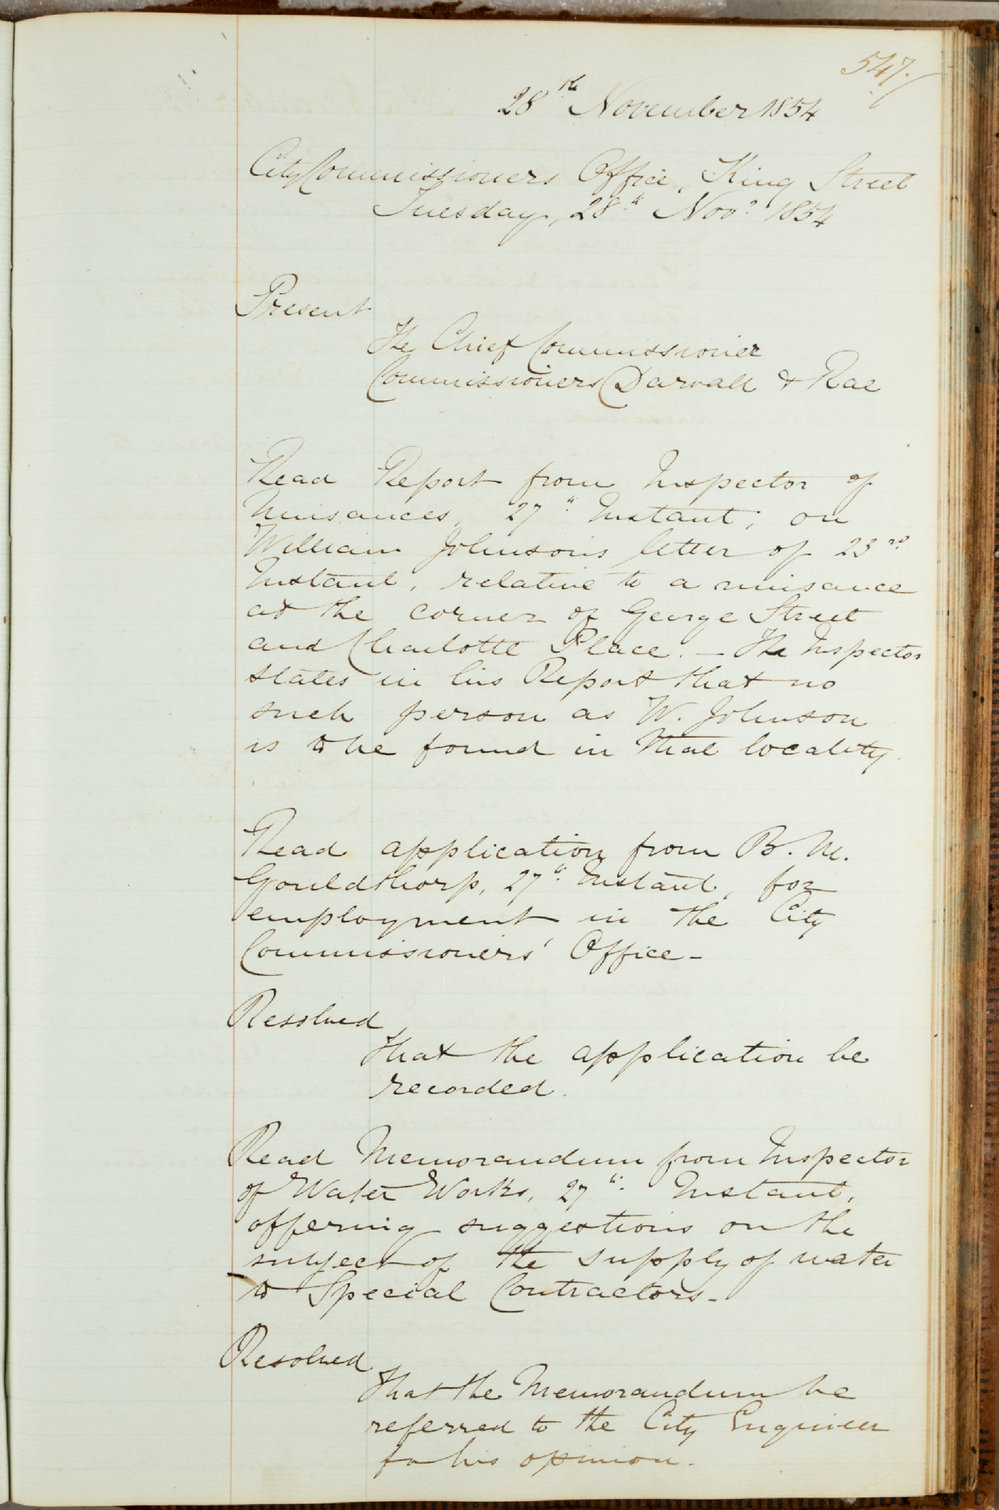 547.
28th November 1854
City Commissioners Office, King Street
Tuesday, 28th Novr 1854
Present
The Chief Commissioner
Commissioners Darvall & Rae
Read Report from Inspector of
Nuisances, 27th Instant, on
William Johnson's letter of 23rd
Instant, relative to a nuisance
at the corner of George Street
and Charlotte Place. – The Inspector
states in his Report that no
such person as W. Johnson
is to be found in that locality.
Read application from B. M.
Gouldthorp, 27th Instant, for
employment in the City
Commissioners' Office –
Resolved
That the application be
recorded.
Read Memorandum from Inspector
of Water Works, 27th Instant,
offering suggestions on the
subject of the supply of water
to Special Contractors –
Resolved
That the Memorandum be
referred to the City Engineer
for his opinion.